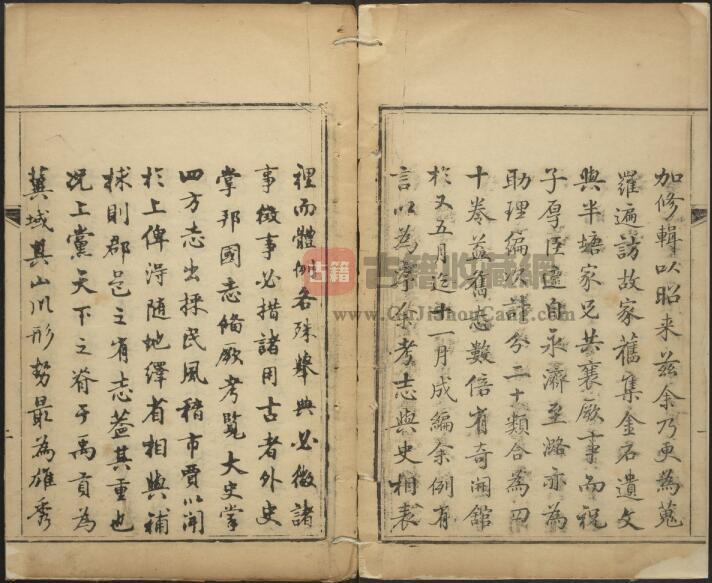 加修輯以昭来茲余乃更為蒐
羅遍訪故家舊集金石遺文
與半塘家兄共襄厥事而祝
子厚臣適自永濟至潞亦為
助理編次計分二十類合為四
十卷益舊志數倍有奇開館
於又五月迄十一月成編余例有
言以為序余考志與史相表
裡而體例各殊舉典必徵諸
事徵事必措諸用古者外史
掌邦國志備厥考覧大史掌
四方志出採民風稽市賈以聞
於上俾得隨地繹省相與補
捄則郡邑之有志葢其重也
况上黨天下之脊于禹貢為
冀域其山川形勢最為雄秀
古籍
古籍收藏網
www.GuJiShouCang.Com
一
一